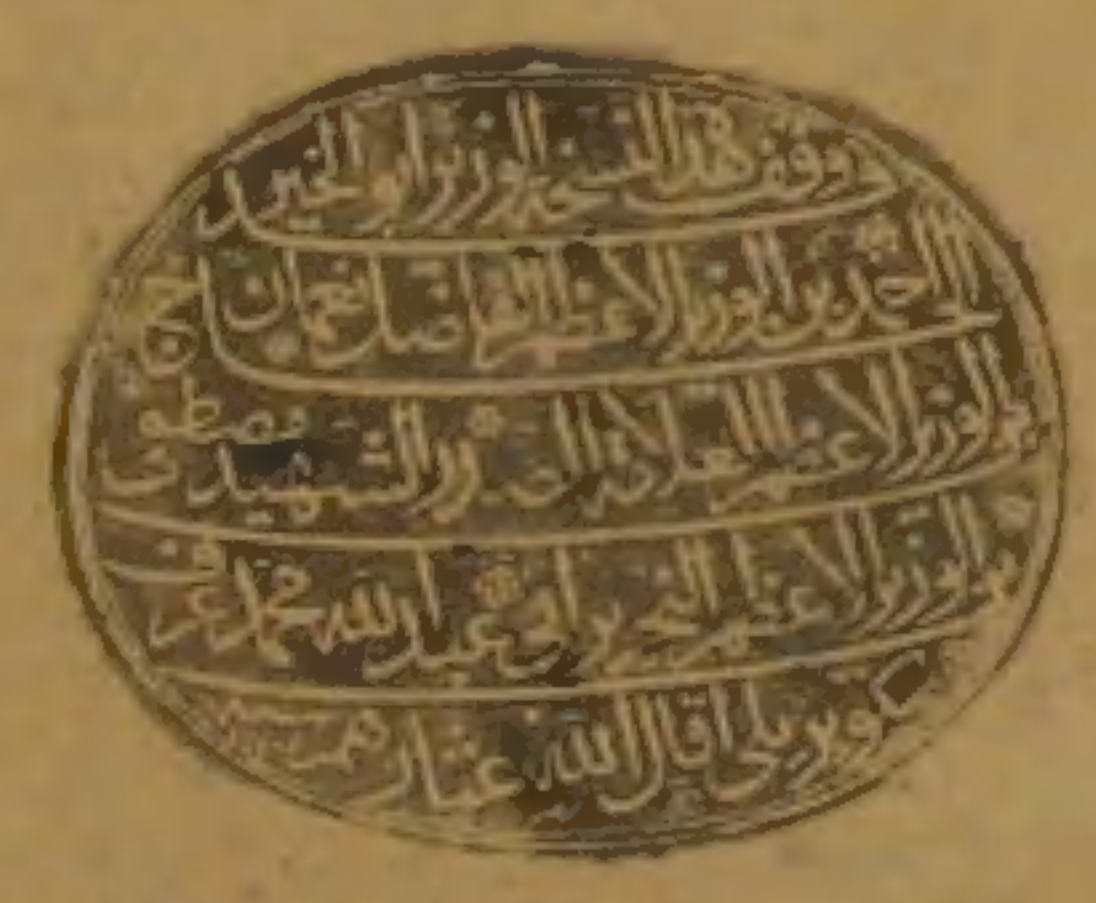 وقف هذ النسخة الوزير ابو الخير
الحاج احمد بن الوزير الاعظم الفاضل نعمان
بن الوزير الاعظم العلامة الشهيد مصطفى
بن الوزير الاعظم النحرير ابى عبد الله محمد عرف
بكوبريلى اقال الله عثارهم